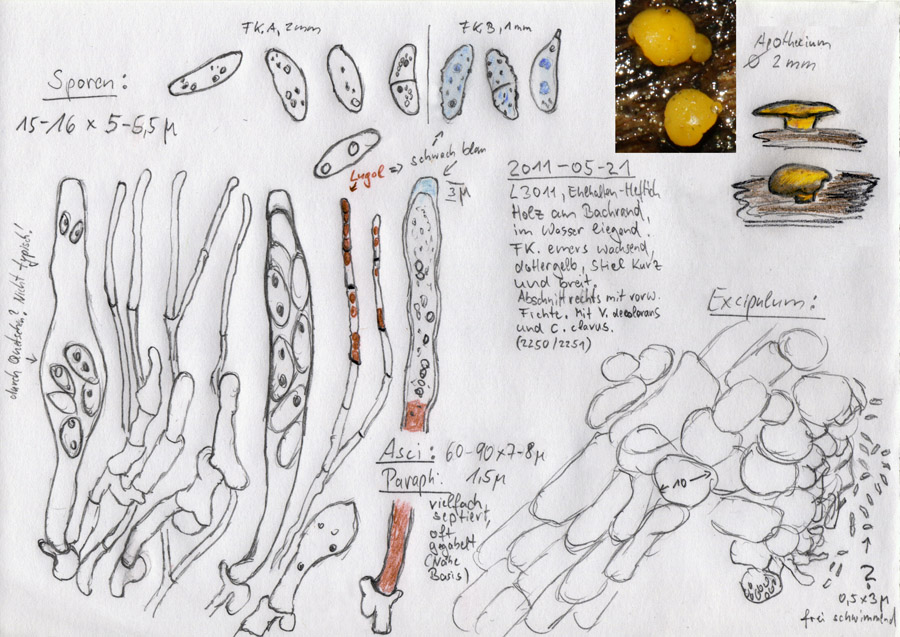 FK.A, 2mm
FK.B, 1mm
Sporen:
15-16 x 5-6,5 µ
Lugol => schwach blau
3 µ
Apothecium
Ø 2 mm
2011-05-21
L3011,
Holz am Bachrand,
im Wasser liegend.
FK. emers wachsend,
dottergelb, Stiel kurz
und breit.
Abschnitt rechts mit vorw.
Fichte. Mit V. decolorans
und C. clavus.
(2250/2251)
durch Quetschen? Nicht typisch!
Excipulum:
10
Asci: 60-90x7-8µ
Paraph: 1,5µ
vielfach
septiert,
oft
gegabelt
(Nähe
Basis)
?
0,5x3 µ
frei schwimmend